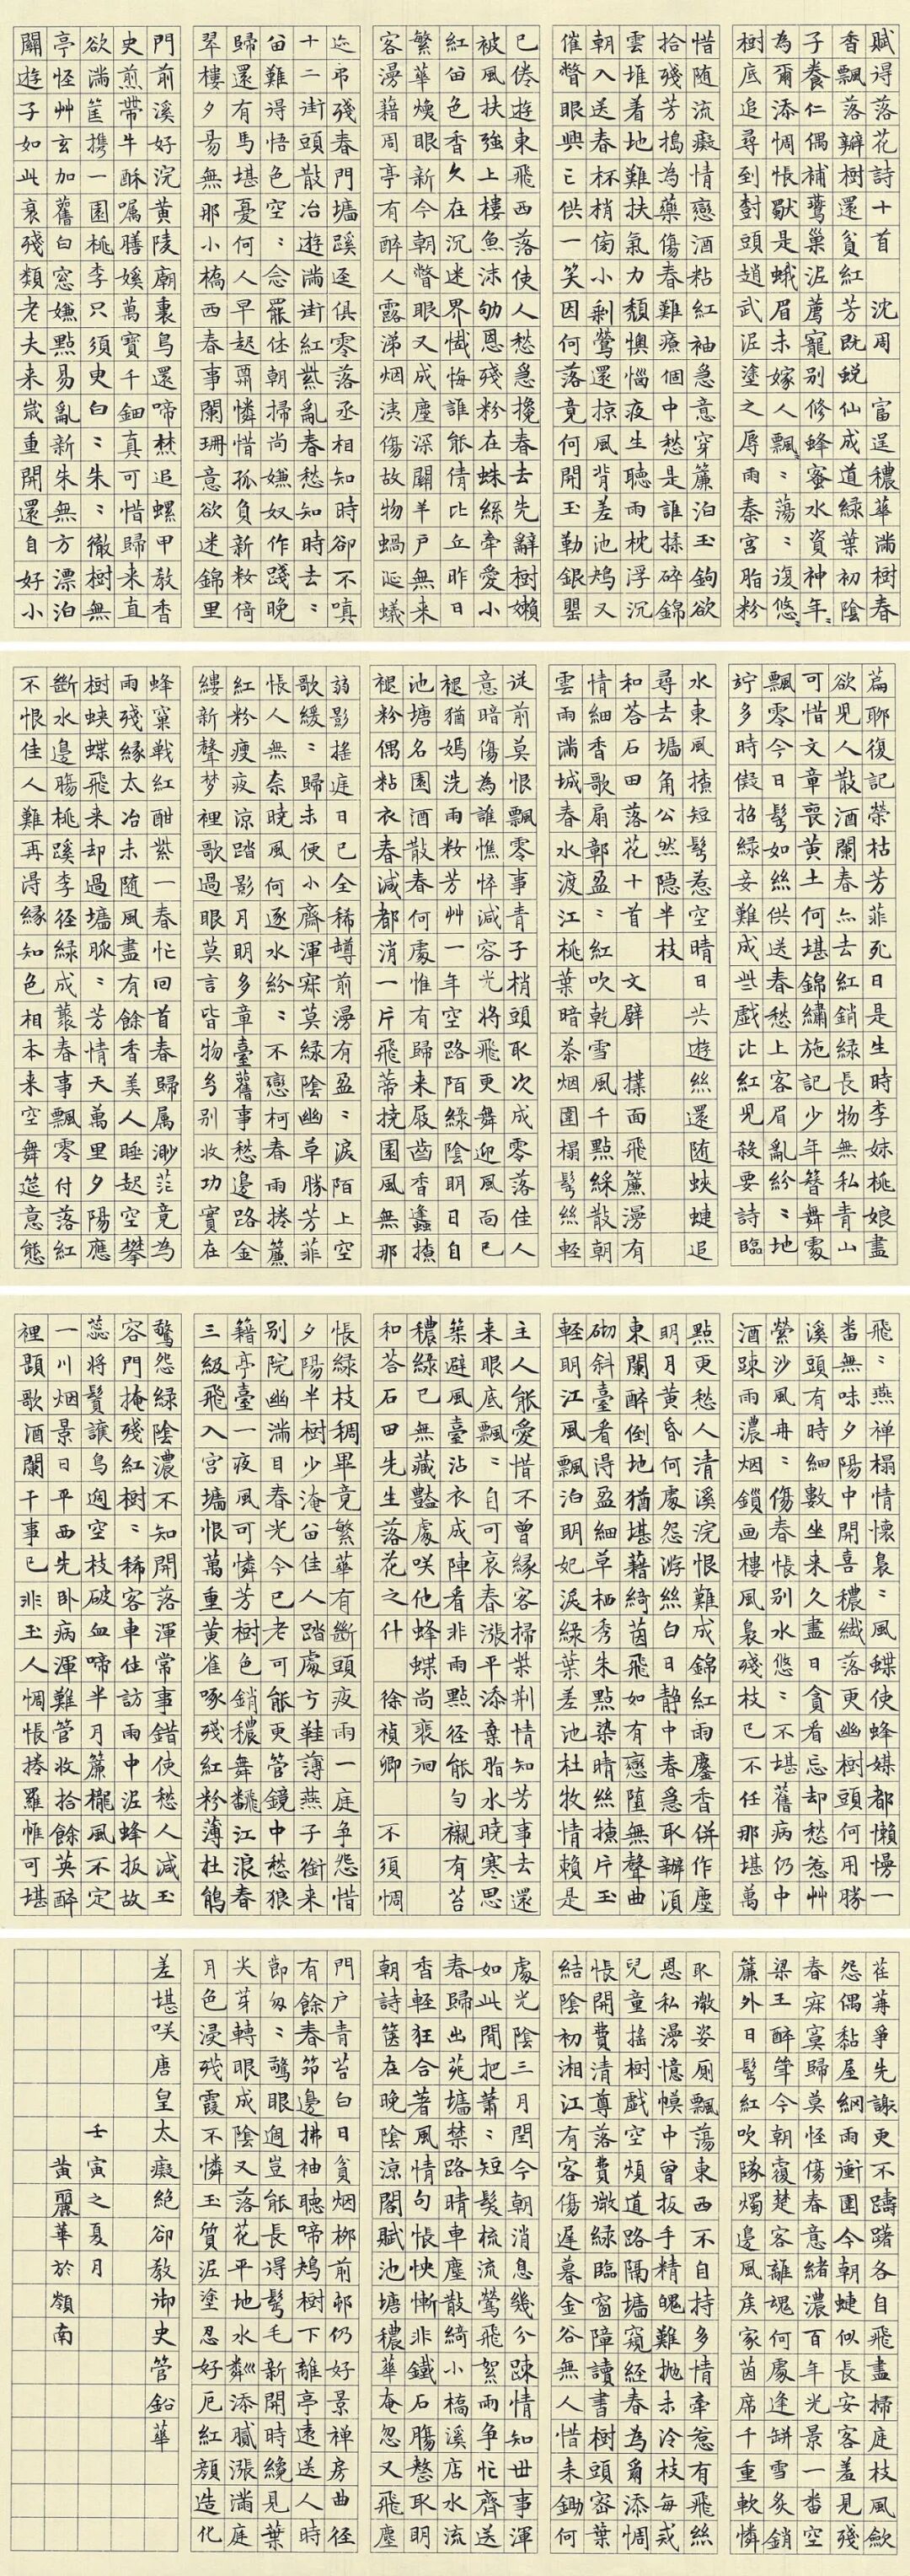 賦得落花詩十首 沈周 富逞穠華滿樹春
香飄落瓣樹還貧紅芳既蛻仙成道綠葉初陰
子養仁偶補鶯巢泥薦寵別修蜂蜜水資神年〻
為爾添惆悵歇是蛾眉未嫁人飄〻蕩〻復悠〻
樹底追尋到對頭趙武泥塗之辱雨秦宮脂粉
惜随流癡情戀酒粘紅袖急意穿簾泊玉鉤欲
拾殘芳搗為藥傷春難療個中愁是誰揉碎錦
雲堆着地難扶氣力頹懊惱夜生聽雨枕浮沉
朝入送春杯梢傍小剩鶯還掠風背差池鴆又
催瞥眼興亡供一笑因何落竟何開玉勒銀罌
已倦遊東飛西落使人愁急攙春去先辭樹嬾
被風扶強上樓魚沫劬恩殘粉在蛛絲牽愛小
紅留色香久在沉迷界懺悔誰能倩比丘昨日
繁華煥眼新今朝瞥眼又成塵深關羊戶無来
客漫藉周亭有醉人露涕烟洟傷故物蝸涎蟻
迹弔殘春門墻蹊逕俱零落丞相知時卻不嗔
十二街頭散冶遊滿街紅紫亂春愁知時去〻
留難得悟色空〻念罷仕朝掃尚嫌奴作踐晚
歸還有馬堪憂何人早起翦憐惜孤負新妝倚
翠樓夕昜無那小橋西春事闌珊意欲迷錦里
門前溪好浣黃陵廟裏鳥還啼焚追螺甲教香
史煎帶牛酥嘱膳媛萬寳千鈿真可惜歸来直
欲滿筐携一園桃李只須臾白〻朱〻徹樹無
亭怪艸玄加舊白窓嫌點易亂新朱無方漂泊
關遊子如此衰殘類老夫来歲重開還自好小
篇聊復記榮枯芳菲死日是生時李妹桃娘盡
欲見人散酒闌春亦去紅銷綠長物無私青山
可惜文章喪黃土何堪錦繡施記少年簪舞處
飄零今日髩如絲供送春愁上客眉亂紛〻地
竚多時假招綠妾難成些戲比紅兒殺要詩臨
水東風揸短髩惹空晴日共遊絲還随蛺蝶追
尋去墻角公然隠半枝
和答石田落花十首 文璧 撲面飛簾漫有
情細香歌扇鄣盈〻紅吹乾雪風千點綵散朝
雲雨滿城春水渡江桃葉暗茶烟園榻髩絲輕
従前莫恨飄零事青子梢頭取次成零落佳人
意暗傷為誰憔悴減容光將飛更舞迎風面已
褪猶嫣洗雨妝芳艸一年空路陌綠陰明日自
池塘名園酒散春何處惟有歸来屐齒香蠭撩
褪粉偶粘衣春減都消一片飛蒂撓園風無那
弱影搖庭日已全稀罇前漫有盈〻淚陌上空
歌緩〻歸未便小齋渾寂莫綠陰幽草勝芳菲
悵人無奈曉風何逐水紛〻不戀柯春雨捲簾
紅粉瘦夜涼踏影月明多章臺舊事愁邊路金
縷新聲梦裡歌過眼莫言皆物幻別收功實在
蜂窠戦紅酣紫一春忙回首春歸属渺茫竟為
雨殘緣太冶未随風盡有餘香美人睡起空攀
樹蛺蝶飛来却過墻脈〻芳情天萬里夕陽應
斷水邊腸桃蹊李径綠成叢春事飄零付落紅
不恨佳人難再淂緣知色相本来空舞筵意態
飛〻燕禅榻情懷裊〻風蝶使蜂媒都懶慢一
番無味夕陽中開喜穠纖落更幽樹頭何用勝
溪頭有時細數坐来久盡日貪看忘却愁惹艸
縈沙風冉〻傷春悵別水悠〻不堪舊病仍中
酒踈雨濃烟鎖画樓風裊殘枝已不任那堪萬
點更愁人清溪浣恨難成錦紅雨鏖香併作塵
明月黃昏何處怨游絲白日靜中春急取辦須
東闌醉倒地猶堪藉綺茵飛如有戀堕無聲曲
砌斜臺看得盈細草栖秀朱點染晴絲撩片玉
軽明江風飄泊明妃淚綠葉差池杜牧情賴是
主人能愛惜不曾緣客掃柴荆情知芳事去還
来眼底飄〻自可哀春漲平添棄脂水曉寒思
築避風臺沾衣成陣看非雨點径能勻襯有苔
穠綠已無藏豔處咲他蜂蝶尚裵洄
和荅石田先生落花之什 徐禎卿 不須惆
悵綠枝稠畢竟繁華有斷頭夜雨一庭争怨惜
夕陽半樹少淹留佳人踏處弓鞋薄燕子銜来
別院幽滿目春光今已老可能更管鏡中愁狼
籍亭臺一夜風可憐芳樹色銷穠舞飜江浪春
三級飛入宮墻恨萬重黃雀啄殘紅粉薄杜鵑
驚怨綠陰濃不知開落渾常事錯使愁人減玉
容門掩殘紅樹〻稀客車住訪雨中泥蜂扳故
蕊將鬚讓鳥遶空枝破血啼半月簾櫳風不定
一川烟景日平西先卧病渾難管收拾餘英醉
裡題歌酒闌干事已非玉人惆悵捲羅帷可堪
荏苒爭先謝更不躊躇各自飛盡掃庭枝風歛
怨偶黏屋網雨衝團今朝蜨似長安客羞見殘
春寂寞歸莫怪傷春意緒濃百年光景一番空
梁王醉筆今朝覆楚客離魂何處逢缾雪炙銷
簾外日髩紅吹隊燭邊風矦家茵席千重軟憐
取溦姿厠飄蕩東西不自持多情牽惹有飛絲
恩私漫憶幙中曾扳手精魄難抛未冷枝每戒
兒童搖樹戲空煩道路隔墻窺經春為爾添惆
悵開費清尊落費溦綠臨窗障讀書樹頭密葉
結陰初湘江有客傷遅暮金谷無人惜耒鋤何
處光陰三月閏今朝消息幾分踈情知世事渾
如此閒把蕭〻短髮梳流鶯飛絮雨争忙齊送
春歸出苑墻禁路晴車塵散綺小橋溪店水流
香輕狂合著風情句悵怏慚非鐵石腸愁取明
朝詩篋在晚陰涼閣賦池塘穠華奄忽又飛塵
門戶青苔白日貧烟柳前邨仍好景禅房曲径
有餘春笻邊拂袖聽啼鴆樹下離亭遠送人時
節匆〻驚眼遶豈能長得髩毛新開時纔見葉
尖芽轉眼成陰又落花平地水粼添膩漲滿庭
月色浸殘霞不憐玉質泥塗忍好厄紅顔造化
差堪咲唐皇太癡絕卻教御史管鉛華
壬寅之夏月
黃麗華於嶺南